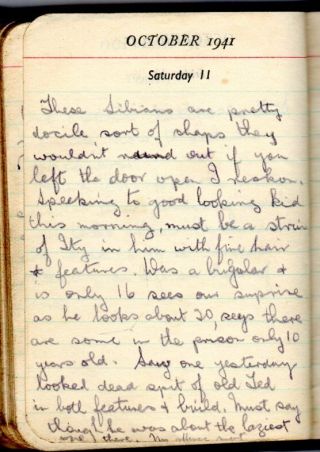 OCTOBER 1941
Saturday 11
These Libians are pretty
docile sort of chaps they
wouldn't out if you
left the door open I reckon.
Speeking to good looking kid
this morning, must be a strain
of Ity in him with fine hair
& features. Was a burglar &
is only 16 sees our suprise
as he looks about 20, says there
are some in the prison only 10
years old. Saw one yesterday
looked dead spit of old Ted
in both features & build. Must say
though he was about the laziest
one there.